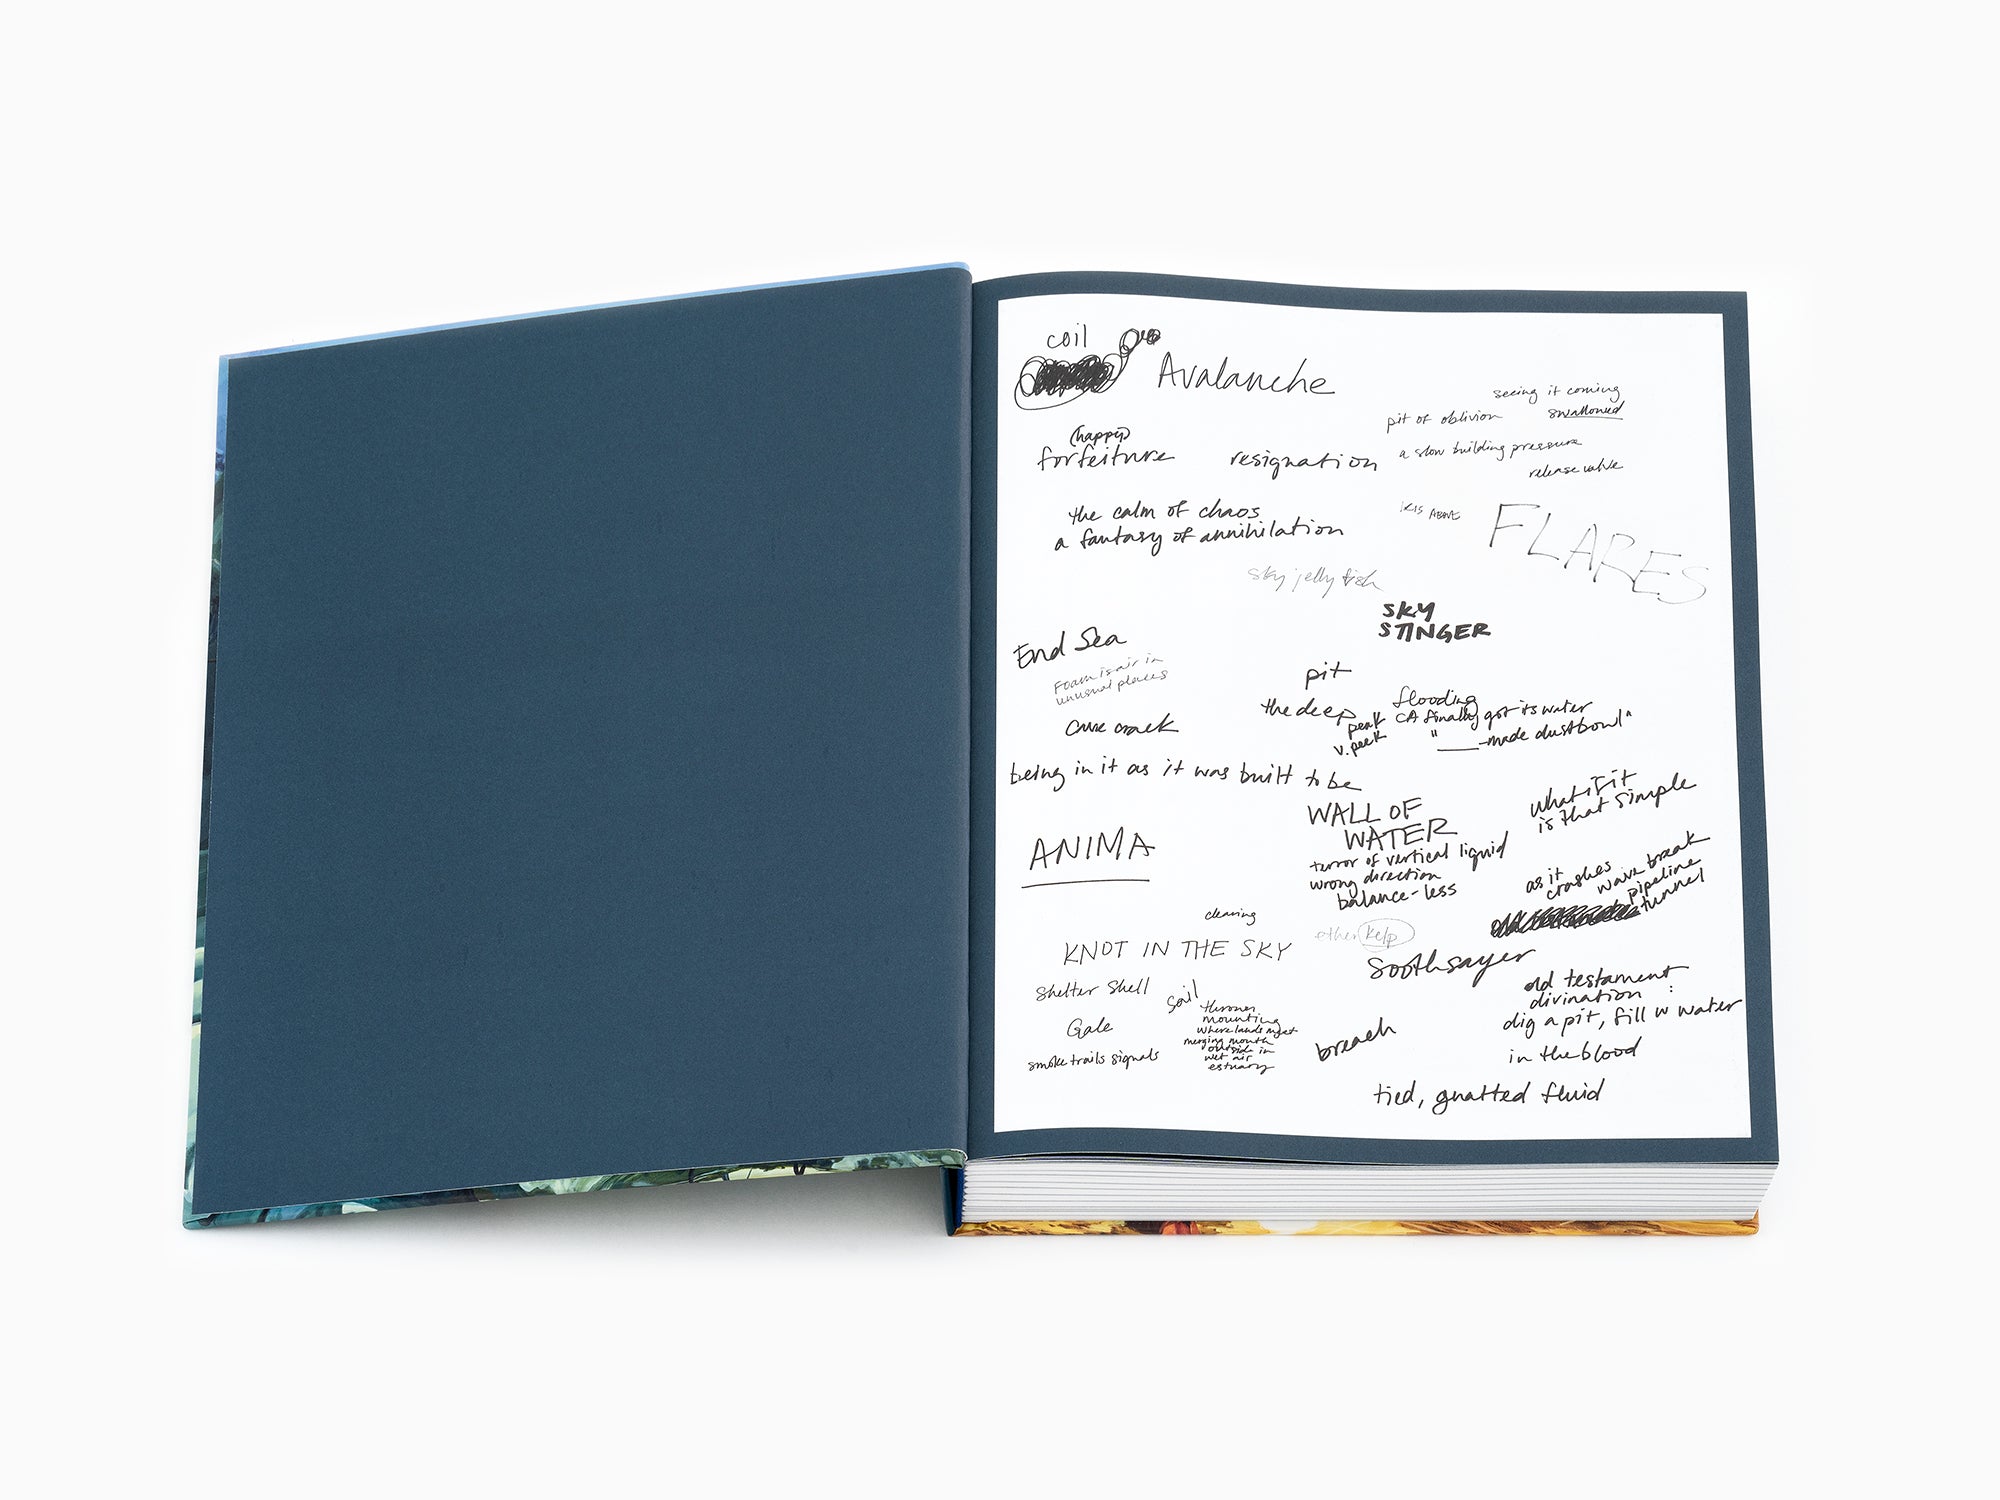 coil
Avalanche
seeing it coming
pit of oblivion swallowed
(happy)
forfeiture
resignation
a slow building pressure
release valve
the calm of chaos
a fantasy of annihilation
ABOVE
FLARES
sky jelly fish
SKY
STINGER
End Sea
Foam is air in
unusual places
pit
the deep
peak
v. peek
flooding
CA finally got its water
"____-made dustbowl"
crack
being in it as it was built to be
WALL OF
WATER
terror of vertical liquid
wrong direction
balance-less
what if it
is that simple
ANIMA
as it
crashes
wave break
pipeline
tunnel
clearing
KNOT IN THE SKY
kelp
Soothsayer
Shelter Shell
soil
thrones
mounting
where lands meet
merging mouth
outside in
wet air
estuary
Gale
smoke trails signals
breach
old testament
divination :
dig a pit, fill w water
in the blood
tied, gnatted fluid